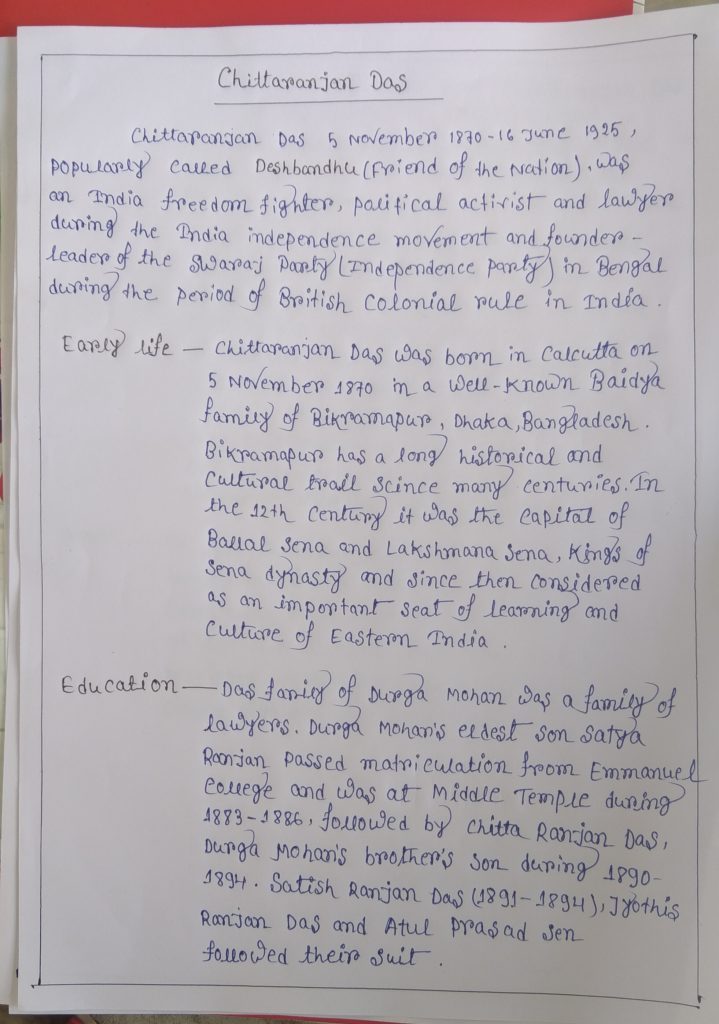 Chittaranjan Das
Chittaranjan Das 5 November 1870-16 June 1925,
popularly called Deshbandhu (Friend of the Nation), was
an India freedom fighter, political activist and lawyer
during the India independence movement and founder-
leader of the Swaraj Party (Independence party) in Bengal
during the period of British Colonial rule in India.
Early life - Chittaranjan Das was born in Calcutta on
5 November 1870 in a well-known Baidya
family of Bikramapur, Dhaka, Bangladesh.
Bikramapur has a long historical and
Cultural trail scince many centuries. In
the 12th Century it was the capital of
Ballal Sena and Lakshmana Sena, Kings of
Sena dynasty and since then considered
as an important seat of learning and
Culture of Eastern India.
Education - Das family of Durga Mohan was a family of
lawyers. Durga Mohan's eldest son Satya
Ranjan Passed matriculation from Emmanuel
College and was at Middle Temple during
1883-1886, followed by Chitta Ranjan Das,
Durga Mohan's brother's son during 1890-
1894. Satish Ranjan Das (1891-1894), Jyothis
Ranjan Das and Atul Prasad Sen
followed their suit.